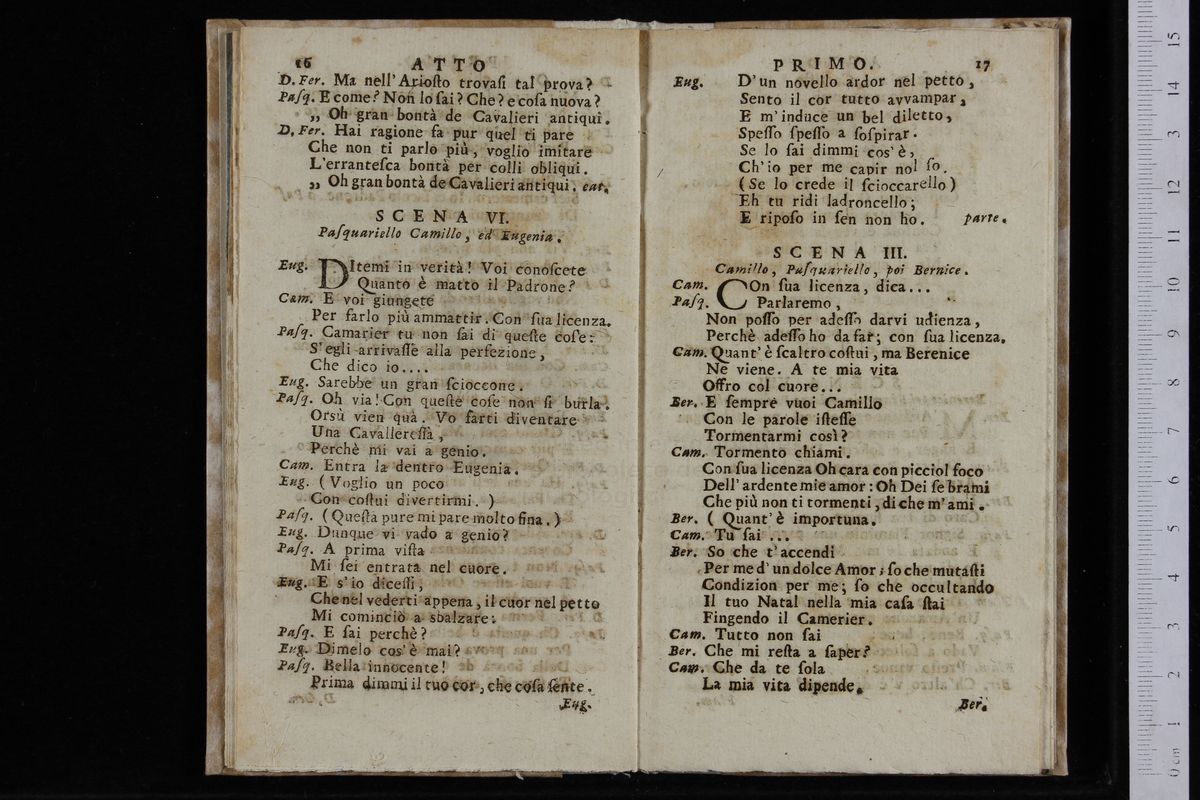 16 ATTO
D. Fer. Ma nell' Arioſto trovaſi tal prova?
Paſq. E come? Non lo ſai? Che? e coſa nuova?
„ Oh gran bontà de Cavalieri antiqui.
D. Fer. Hai ragione fa pur quel ti pare
Che non ti parlo più, voglio imitare
L'erranteſca bontà per colli obliqui.
„ Oh gran bontà de Cavalieri antiqui. eat.
SCENA VI.
Paſquariello Camillo, ed Eugenia.
Eug. DItemi in verità! Voi conoſcete
Quanto è matto il Padrone?
Cam. E voi giungete
Per farlo più ammattir. Con ſua licenza.
Paſq. Camarier tu non ſai di queſte coſe:
S'egli arrivaſſe alla perfezione,
Che dico io....
Eug. Sarebbe un gran ſcioccone.
Paſq. Oh via! Con queſte coſe non ſi burla.
Orsù vien quà. Vo farti diventare
Una Cavallereſſa,
Perchè mi vai a genio.
Cam. Entra la dentro Eugenia.
Eug. (Voglio un poco
Con coſtui divertirmi.)
Paſq. (Queſta pure mi pare molto fina.)
Eug. Dunque vi vado a genio?
Paſq. A prima viſta
Mi ſei entrata nel cuore.
Eug. E s'io diceſſi,
Che nel vederti appena, il cuor nel petto
Mi cominciò a sbalzare:
Paſq. E ſai perchè?
Eug. Dimelo cos'è mai?
Paſq. Bella innocente!
Prima dimmi il tuo cor, che coſa ſente.
Eug.
PRIMO. 17
Eug. D'un novello ardor nel petto,
Sento il cor tutto avvampar,
E m'induce un bel diletto,
Speſſo ſpeſſo a ſoſpirar.
Se lo ſai dimmi cos'è,
Ch'io per me capir nol ſo.
(Se lo crede il ſcioccarello)
Eh tu ridi ladroncello;
E ripoſo in ſen non ho. parte.
SCENA III.
Camillo, Paſquariello, poi Bernice.
Cam. COn ſua licenza, dica...
Paſq. Parlaremo,
Non poſſo per adeſſo darvi udienza,
Perchè adeſſo ho da far; con ſua licenza.
Cam. Quant'è ſcaltro coſtui, ma Berenice
Ne viene. A te mia vita
Offro col cuore...
Ber. E ſempre vuoi Camillo
Con le parole iſteſſe
Tormentarmi così?
Cam. Tormento chiami.
Con ſua licenza Oh cara con picciol foco
Dell'ardente mie amor: Oh Dei ſe brami
Che più non ti tormenti, di che m'ami.
Ber. (Quant'è importuna.
Cam. Tu ſai ...
Ber. So che t'accendi
Per me d'un dolce Amor; ſo che mutaſti
Condizion per me; ſo che occultando
Il tuo Natal nella mia caſa ſtai
Fingendo il Camerier.
Cam. Tutto non ſai
Ber. Che mi reſta a ſaper?
Cam. Che da te ſola
La mia vita dipende.
Ber.